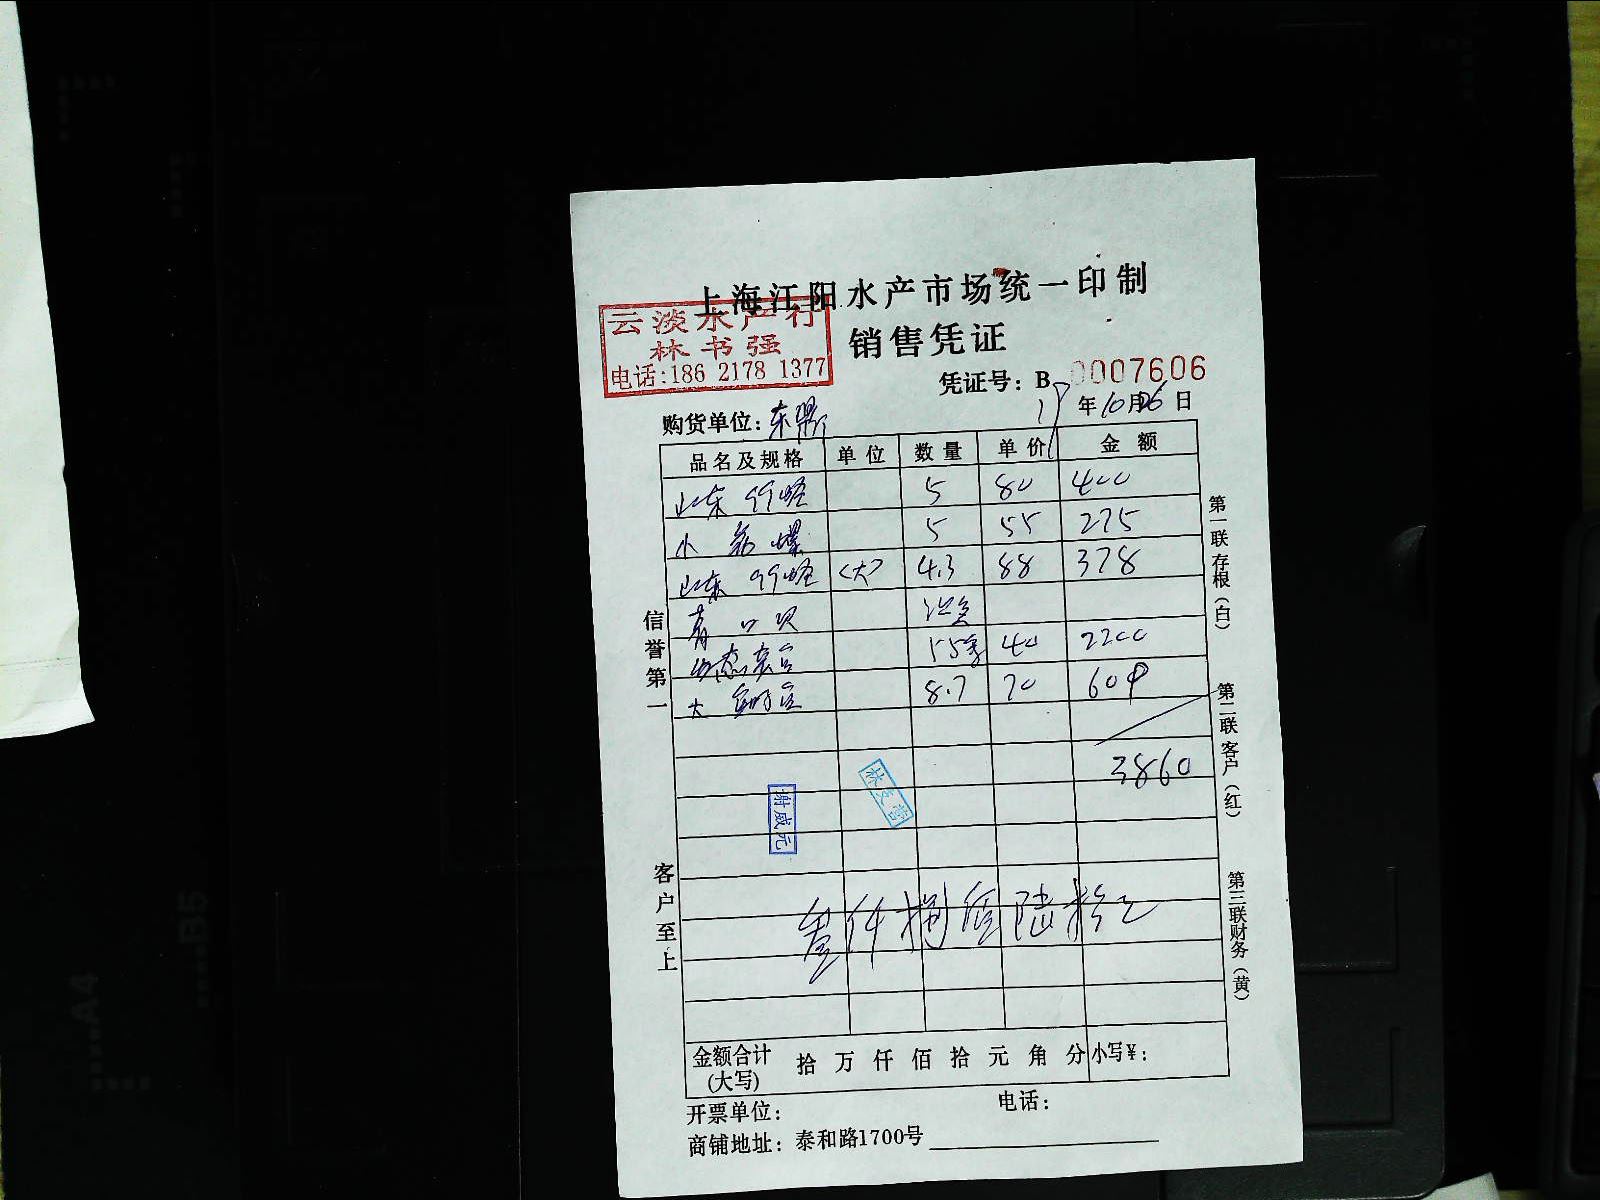 上海江阳水产市场统一印制
云淡水产行
林书强
电话:186 2178 1377
销售凭证
凭证号：B 0007606
购货单位：东 年10月26日
品名及规格 单位 数量 单价 金额
山东 5 80 400
小 螺 5 55 275
山东 <大> 4.3 88 378
青口贝
55 40 2200
大 8.7 70 609
3860
谢威元
叁仟捌佰陆拾元
金额合计(大写) 拾 万 仟 佰 拾 元 角 分 小写¥：
开票单位： 电话：
商铺地址：泰和路1700号
信誉第一
客户至上
第一联存根(白)
第二联客户(红)
第三联财务(黄)